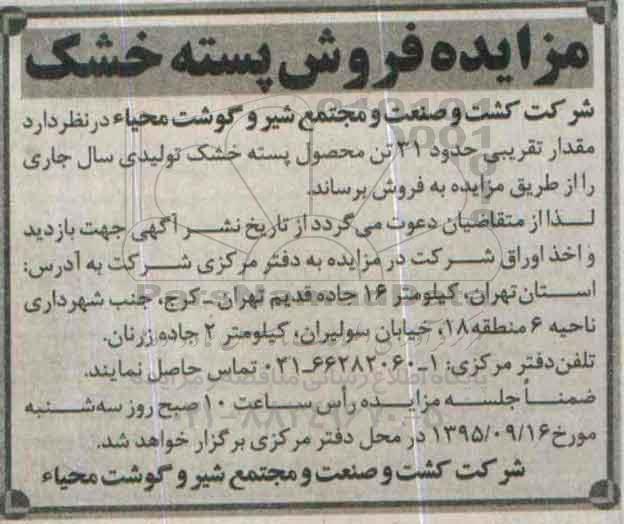 مزایده فروش پسته خشک
شرکت کشت و صنعت و مجتمع شیر و گوشت محیاء در نظر دارد
مقدار تقریبی حدود ۳۱ تن محصول پسته خشک تولیدی سال جاری
را از طریق مزایده به فروش برساند.
لذا از متقاضیان دعوت می گردد از تاریخ نشر آگهی جهت بازدید
و اخذ اوراق شرکت در مزایده به دفتر مرکزی شرکت به آدرس:
استان تهران، کیلومتر ۱۶ جاده قدیم تهران ـ کرج، جنب شهرداری
ناحیه ۶ منطقه ۱۸، خیابان سولیران، کیلومتر ۲ جاده زرنان.
تلفن دفتر مرکزی: ۱-۶۶۲۸۲۰۶۰-۰۲۱ تماس حاصل نمایند.
ضمناً جلسه مزایده رأس ساعت ۱۰ صبح روز سه شنبه
مورخ ۱۳۹۵/۰۹/۱۶ در محل دفتر مرکزی برگزار خواهد شد.
شرکت کشت و صنعت و مجتمع شیر و گوشت محیاء